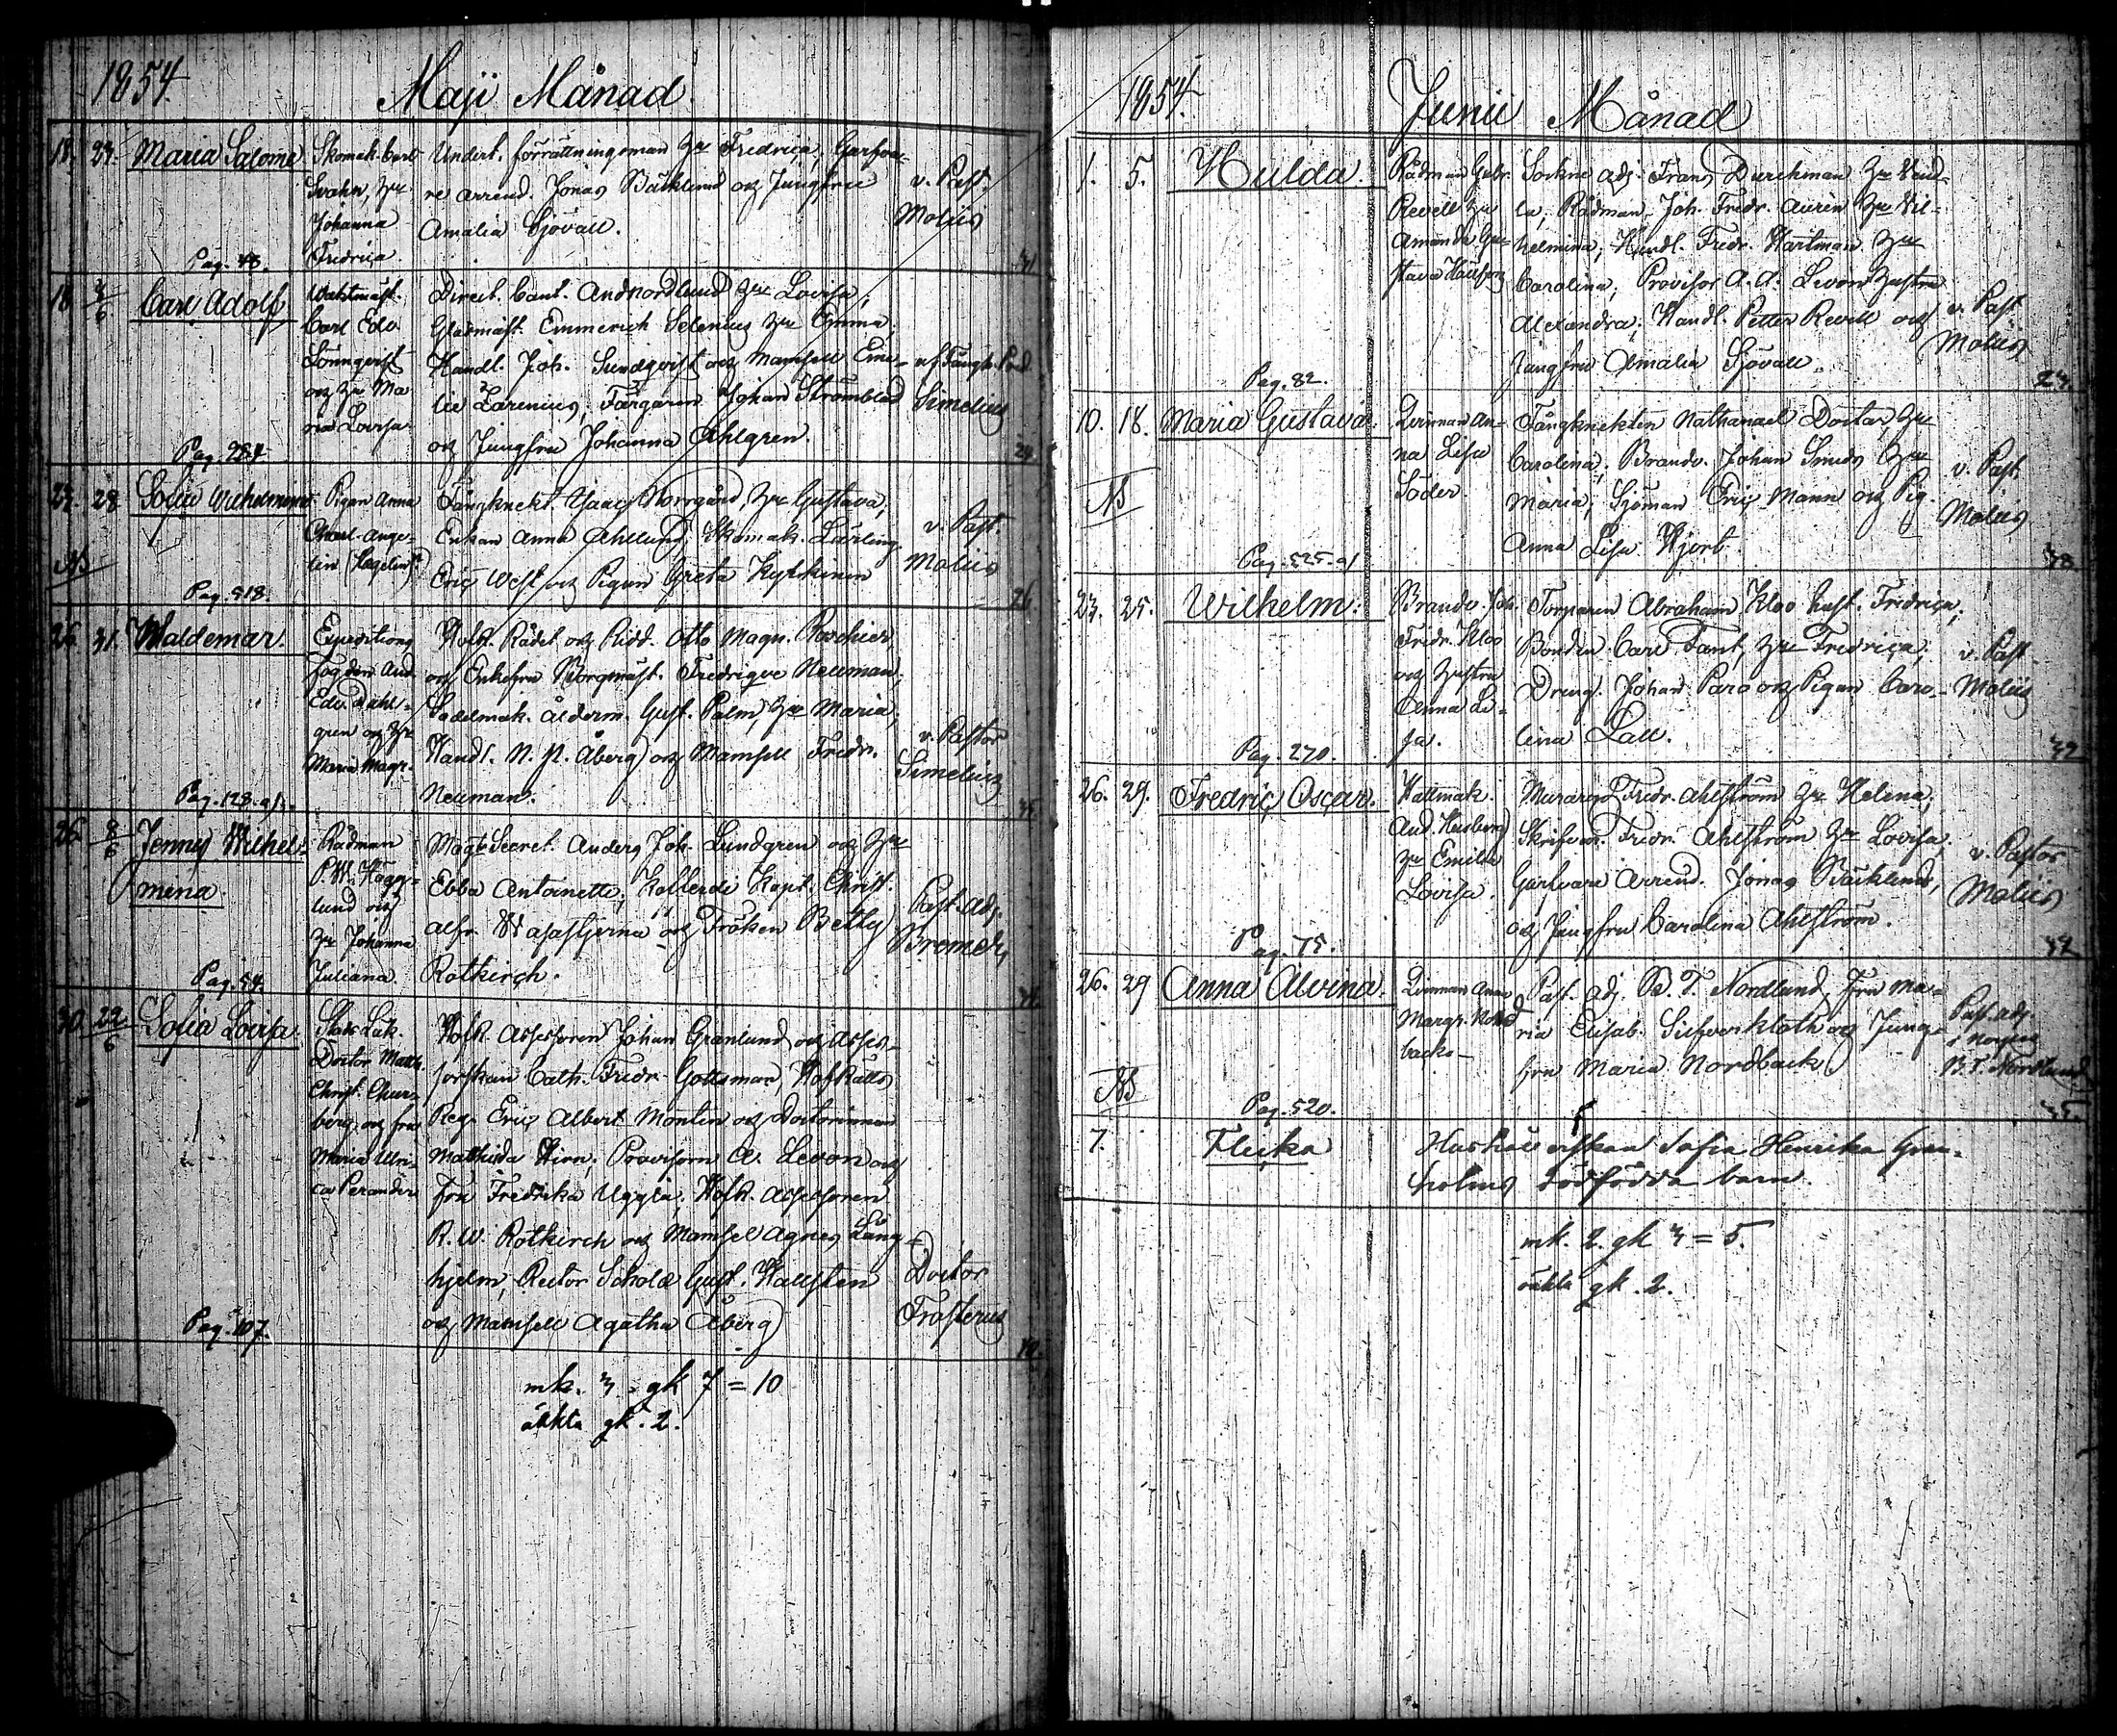 1854.
Maji Månad.
18. 23. Maria Salome
Skomak. Carl
Svahn, Hu
Johanna
Fredrica
Undert. förrättningsman Hu Fredrica, Garfva-
re arrend. Jonas Bäcklund och Jungfru
Amalia Sjövall.
v. Past.
Moliis
Pag. 48.
31
18 Carl Adolf
Waktmäst.
Carl Edv.
Lönnqvist
och Hu Ma
ria Lovisa
Direct. Cant. And Nordlund Hu Lovisa,
Glasmäst. Emmerich Selenius Hu Emma;
Handl. Joh. Sundqvist och Mamsell Eme-
lie Zarenius, Färgaren Johan Strömblad
och Jungfru Johanna Ahlgren.
Simelius
Pag. 284
29.
28 Sofia Wilhelmina
Pigan Anna
Charl. Ange-
lin (Hagelin)
Fångknekt. Isaac Norrgård, Hu Gustava,
Enkan Anna Ahllund; Skomak. Lärling
Eric West och Pigan Greta Kyhkönen
v. Past.
Molius
Pag. 518.
26.
26. 31. Waldemar.
Expeditions
fogden And.
Edv. Dahl-
gren och Hu
Maria Magr.
Hofr. Rådet och Ridd. Otto Magn. Roschier,
och Enkefru Borgmäst. Fredrique Neuman;
Sadelmak. ålderm. Gust. Palm, Hu Maria;
Handl. N. N. Åberg och Mamsell Fredr.
Neuman.
v. Pastor
Simelius
Pag. 128.
35
26. 8/6 Jenny Wilhel-
mena.
Rådman
P. W. Hägg-
lund och
Hu Johanna
Juliana.
Mag. Secret. Anders Joh. Lundgren och Hu
Ebba Antoinette, Kollerdi Kapt. Christ.
Alfr. Wasastjerna och Fröken Betty
Rotkirch.
Past. adj.
Bremer,
Pag. 54.
30. 22/6 Sofia Lovisa
Stads Läk.
Doctor Matth.
Christ. Chur-
berg, och fru
Maria Ulri-
ca Perander
Hofr. Assessoren Johan Granlund och Asses-
sorskan Cath. Fredr. Gottsman, Hofrätts
Reg. Eric Albert Montin och Doctorinnan
Mathilda Hirn; Provisorn A. Levon och
fru Fredrika Uggla; Hofr. Assessoren
R. W. Rotkirch och Mamsel Agnes Lång-
hjelm, Rector Scholæ Gust. Hallsten
och Mamsell Agatha Åberg
Doctor
Frosterus
Pag. 107.
40.
mk. 3. gk 7 = 10
oäkta gk. 2.
1854.
Junii Månad
1. 5. Hulda.
Rådman Gabr.
Revell Hu
Amanda Gu-
stava
Sockne adj. Frans Durchman Hu Vend-
la, Rådman Joh. Fredr. Auren Hu Wil-
helmina; Handl. Fredr. Hartman Hu
Carolina; Provisor A. A. Levon Hustru
Alexandra; Handl. Petter Revell och
Jungfru Amalia Sjövall.
v. Past
Molius
Pag. 82.
23.
10. 18. Maria Gustava.
Qvinnan An-
na Lisa
Söder
Fångknekten Nathanael Doctar, Hu
Carolina; Brandv. Johan Smeds Hu
Maria; Sjöman Eric Mann och Pig.
Anna Lisa Hjort.
v. Past.
Molius
Pag. 525.
38.
23. 25. Wilhelm.
Brandv. Joh.
Fredr. Kloo
och Hustru
Anna Li-
sa.
Torparen Abraham Kloo hust. Fredrica;
Bonden Carl Fant, Hu Fredrica;
Dreng. Johan Paro och Pigan Caro-
lina Lall.
v. Past.
Molius
Pag. 270.
32
26. 29. Fredric Oscar.
Hattmak.
And. Hesberg
Hu Emilia
Lovisa.
Murareg. Fredr. Ahlström Hu Helena;
Skrifvar. Fredr. Ahlström Hu Lovisa;
Garfvare Arrend. Jonas Bäcklund,
och Jungfru Carolina Ahlström.
v. Pastor
Molius
Pag. 75.
32
26. 29 Anna Alvina.
Qvinnan Anna
Margr. Nord
backa
Past. adj. B. T. Nordlund, Fru Ma-
ria Elisab. Silfverkloth och Jung-
fru Maria Nordback
Past. adj.
B. T. Nordlund
Pag. 520.
35.
7. Flicka
Hushållerskan Sofia Henrika Gran-
holms dödfödda barn.
mk. 2. gk 3 = 5.
oäkta gk. 2.